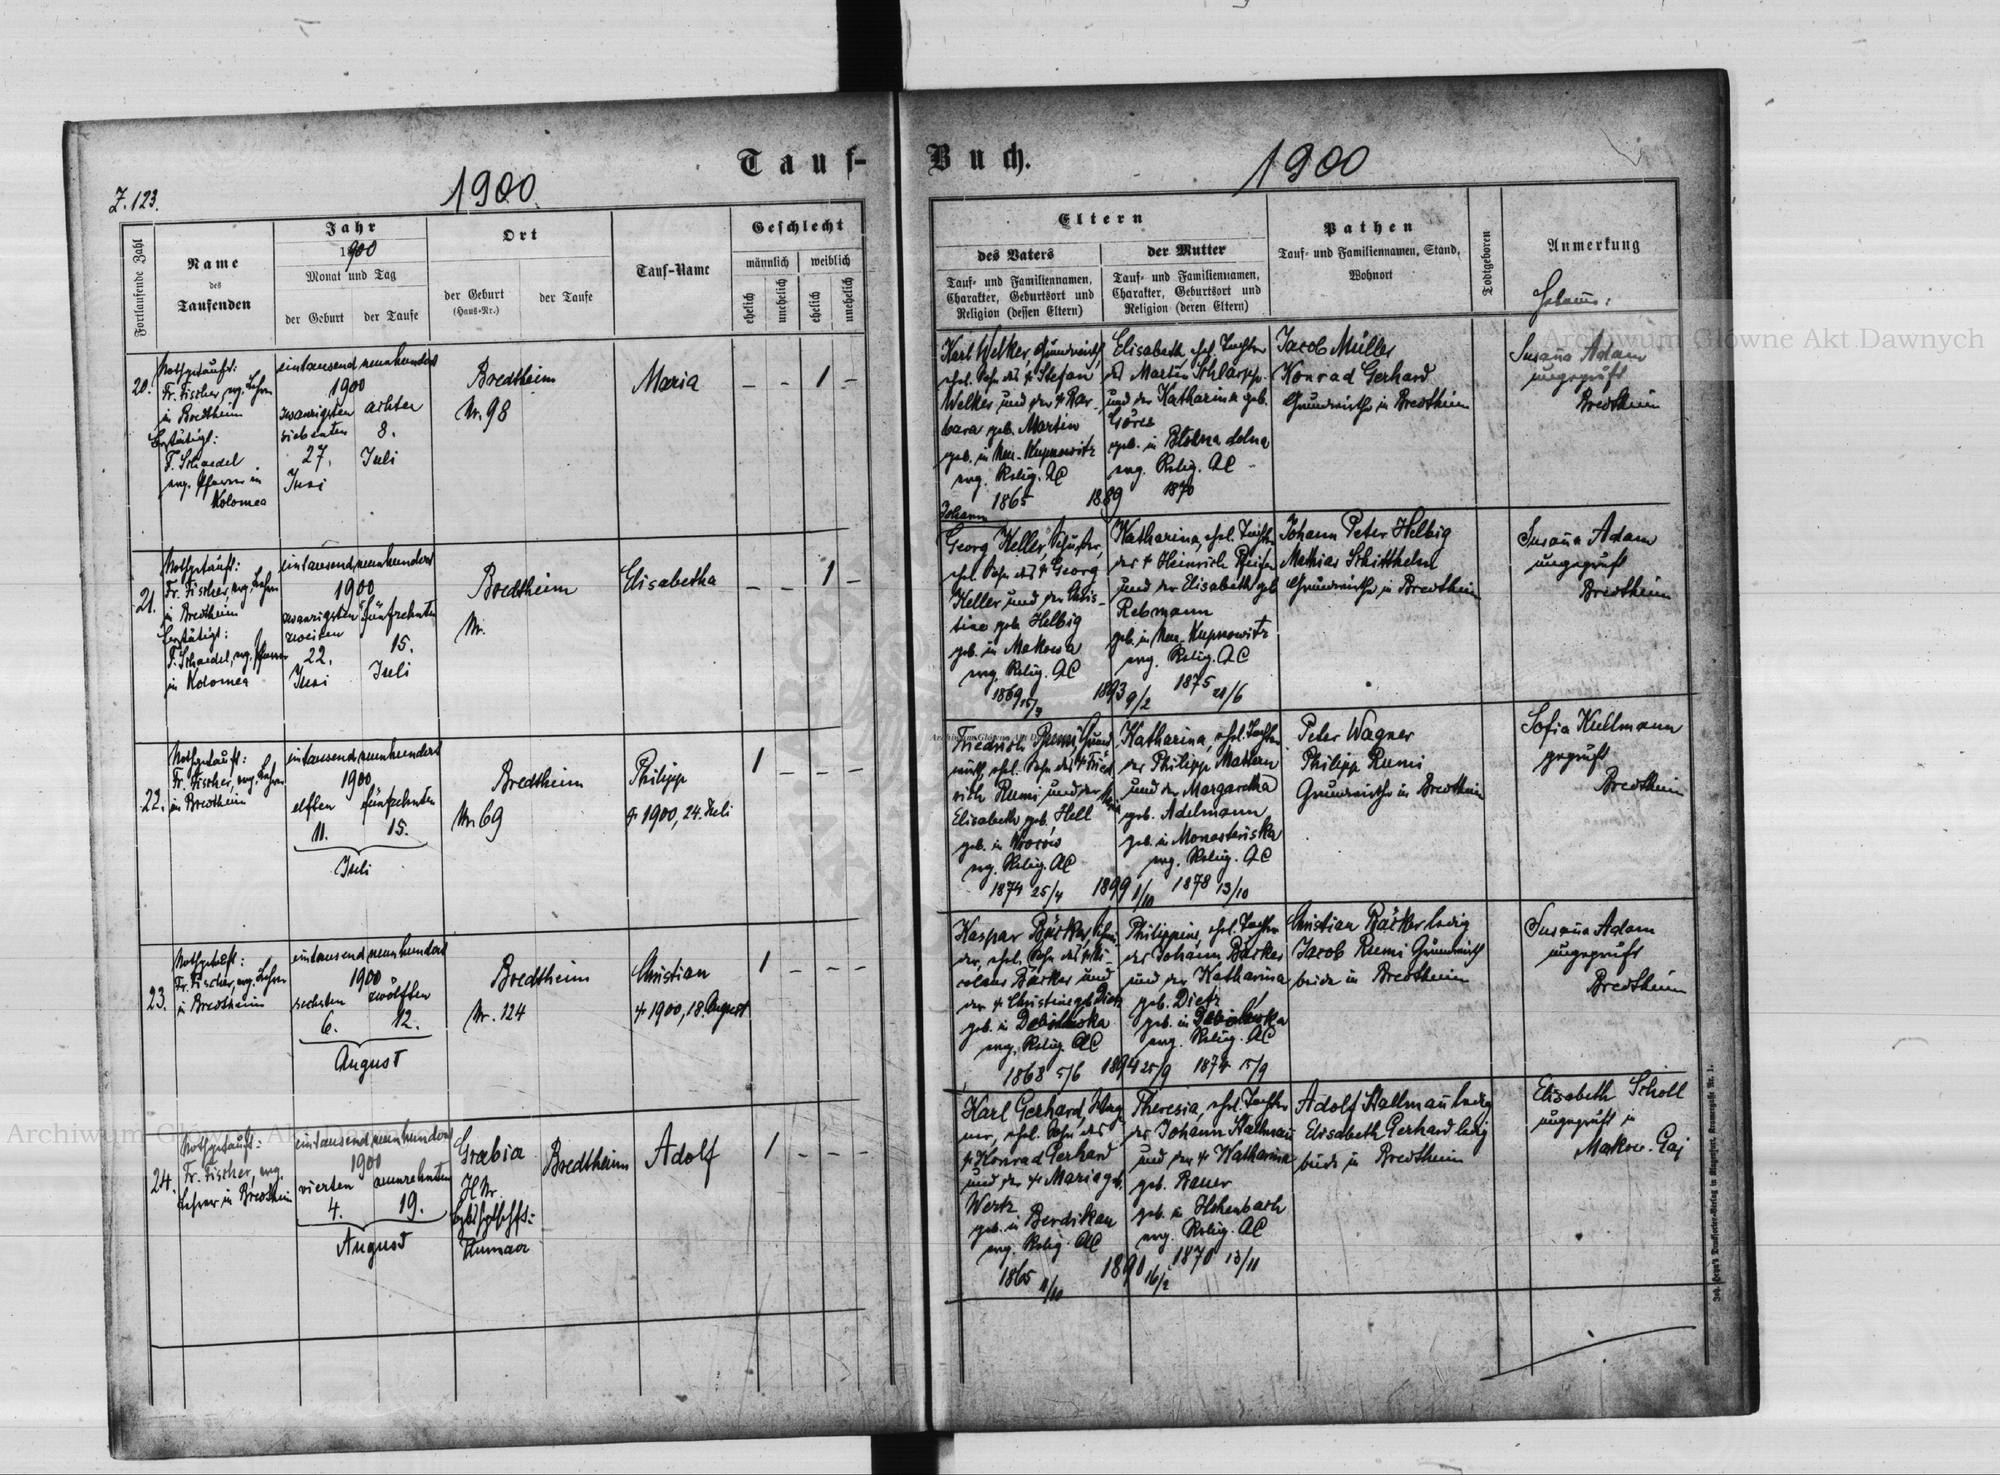 Tauf-
Buch.
1900
1900
Z. 123.
Fortlaufende Zahl
Name
des
Taufenden
Jahr
1900
Monat und Tag
der Geburt
der Taufe
Ort
der Geburt
(Haus-Nr.)
der Taufe
Tauf-Name
Geschlecht
männlich
weiblich
ehelich
unehelich
ehelich
unehelich
Eltern
des Vaters
Tauf- und Familiennamen,
Charakter, Geburtsort und
Religion (dessen Eltern)
der Mutter
Tauf- und Familiennamen,
Charakter, Geburtsort und
Religion (deren Eltern)
Pathen
Tauf- und Familiennamen, Stand,
Wohnort
Todtgeboren
Anmerkung
20.
Nothgetauft:
Fr. Fischer, evg. Lehrer
in Bredtheim
Bestätigt:
F. Schaedel
evg. Pfarrer in
Kolomea
eintausendneunhundert
1900
zwanzigsten
siebenten
27.
Juni
achten
8.
Juli
Bredtheim
Nr. 98
Maria
– – 1 –
Karl Welker, Grundwirth,
ehel. Sohn des + Stefan
Welker und der + Bar-
bara geb. Martin
geb. in Neu-Kupnowitz
evg. Relig. AC
1865
1889
Elisabeth, ehel. Tochter
des Martin Schlarpp
und der Katharina geb.
Göres
geb. in
evg. Relig. AC
1870
Jacob Müller
Konrad Gerhard
Grundwirthe in Bredtheim
Susaña Adam
ungeprüft
Bredtheim
21.
Nothgetauft:
Fr. Fischer, evg. Lehrer
in Bredtheim
Bestätigt:
F. Schaedel, evg. Pfarrer
in Kolomea
eintausendneunhundert
1900
zwanzigsten
zweiten
22.
Juni
fünfzehnten
15.
Juli
Bredtheim
Nr.
Elisabetha
– – 1 –
Johann
Georg Keller, Schuster,
ehel. Sohn des + Georg
Keller und der Chris-
tine geb. Helbig
geb. in Makowa
evg. Relig. AC
1869 15/3
1893 9/2
Katharina, ehel. Tochter
des + Heinrich
und der Elisabeth geb.
Rebmann
geb. in Neu-Kupnowitz
evg. Relig. AC
1875 21/6
Johann Peter Helbig
Mathias Schitthelm
Grundwirthe in Bredtheim
Susaña Adam
ungeprüft
Bredtheim
22.
Nothgetauft:
Fr. Fischer, evg. Lehrer
in Bredtheim
eintausendneunhundert
1900
elften
11.
fünfzehnten
15.
Juli
Bredtheim
Nr. 69
Philipp
+ 1900, 24. Juli
1 – – –
Friedrich Rumi, Grund-
wirth, ehel. Sohn des + Fried-
rich Rumi und der
Elisabeth geb. Hell
geb. in
evg. Relig. AC
1874 25/4
1899 1/10
Katharina, ehel. Tochter
des Philipp Mattern
und der Margaretha
geb. Adelmann
geb. in Monasteriska
evg. Relig. AC
1878 13/10
Peter Wagner
Philipp Rumi
Grundwirthe in Bredtheim
Sofia Kullmann
geprüft
Bredtheim
23.
Nothgetauft:
Fr. Fischer, evg. Lehrer
in Bredtheim
eintausendneunhundert
1900
sechsten
6.
zwölften
12.
August
Bredtheim
Nr. 124
Christian
+ 1900, 18. August
1 – – –
Kaspar Bäcker,
ehel. Sohn des + Ni-
colaus Bäcker und
der + Christine geb. Dietz
geb. in
evg. Relig. AC
1868 5/6
1894 25/9
Philippine, ehel. Tochter
des Johann Bäcker
und der Katharina
geb. Dietz
geb. in
evg. Relig. AC
1874 15/9
Christian Bäcker ledig
Jacob Rumi Grundwirth
beide in Bredtheim
Susaña Adam
ungeprüft
Bredtheim
24.
Nothgetauft:
Fr. Fischer, evg.
Lehrer in Bredtheim
eintausendneunhundert
1900
vierten
4.
neunzehnten
19.
August
Grabia
H Nr.
Tlumacz
Bredtheim
Adolf
1 – – –
Karl Gerhard, Wag-
ner, ehel. Sohn des
+ Konrad Gerhard
und der + Maria geb.
Wertz
geb. in Berdikau
evg. Relig. AC
1865 11/10
1890 16/2
Theresia, ehel. Tochter
des Johann Stallmañ
und der + Katharina
geb. Bauer
geb. in Hohenbach
evg. Relig. AC
1870 13/11
Adolf Stallmañ ledig
Elisabeth Gerhard ledig
beide in Bredtheim
Elisabeth Scholl
ungeprüft in
Makow. Gaj
Archiwum Główne Akt Dawnych
Archiwum Główne Akt Dawnych